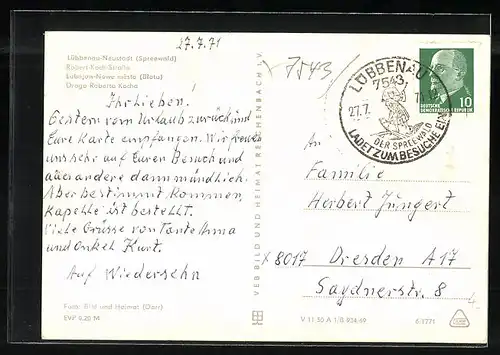 27.7.71
Lübbenau-Neustadt (Spreewald)
Robert-Koch-Straße
Lubnjow-Nowe město (Błota)
Droga Roberta Kocha
7543
Ihr Lieben!
Gestern vom Urlaub zurück und
Eure Karte empfangen. Wir freuen
uns sehr auf Euren Besuch und
alles andere dann mündlich.
Aber bestimmt kommen,
Kapelle ist bestellt.
Viele Grüsse von Tante Irma
und Onkel Kurt.
Auf Wiedersehn
Foto: Bild und Heimat (Darr)
EVP 0,20 M
VEB BILD UND HEIMAT REICHENBACH I. V.
LÜBBENAU
7543
27.7.
DER SPREEWALD
LADET ZUM BESUCHE EIN
DEUTSCHE
DEMOKRATISCHE REPUBLIK
10
An
Familie
Herbert Jüngert
X 8017 Dresden A17
Saydnerstr. 8
V 11 50 A 1/B 834/69
6/1771